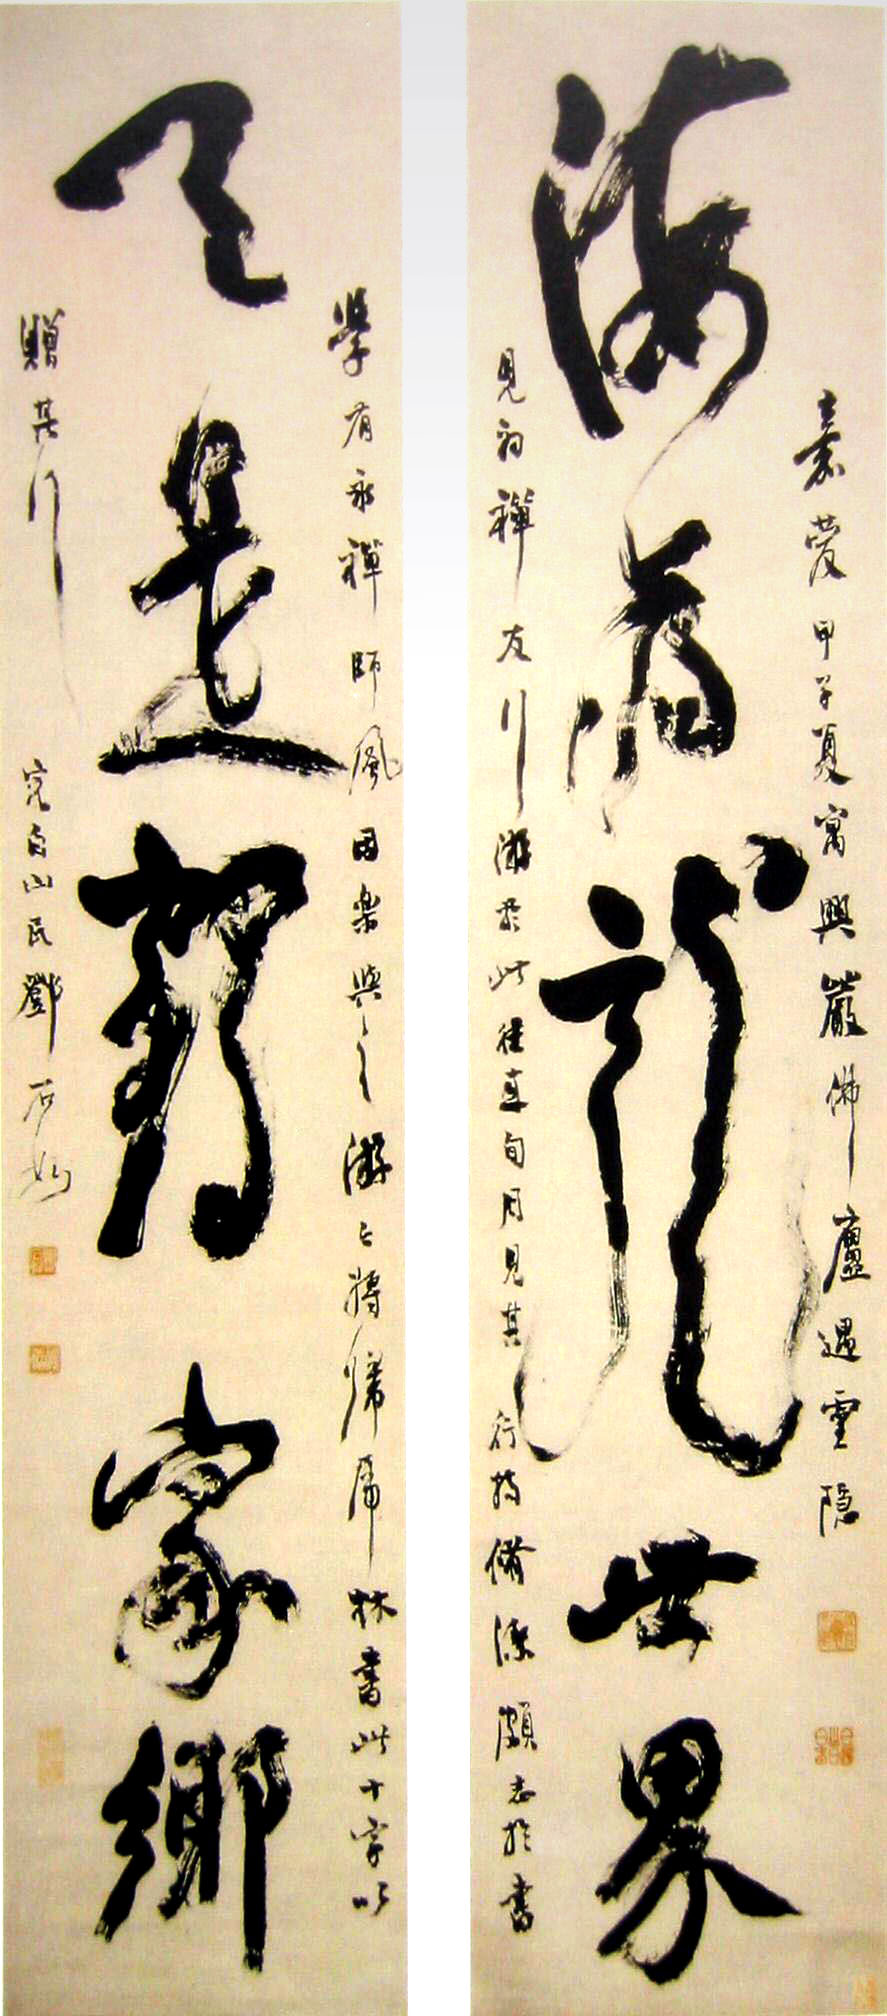 海為龍世界
天是鶴家鄉
嘉慶甲子夏寓興嚴佛廬遇靈隱
見初禪友行游於此旬月見其行持脩潔頗志於書
學有永禪師風因樂與之游々將歸虎林書此十字以
贈其行
完白山民鄧石如